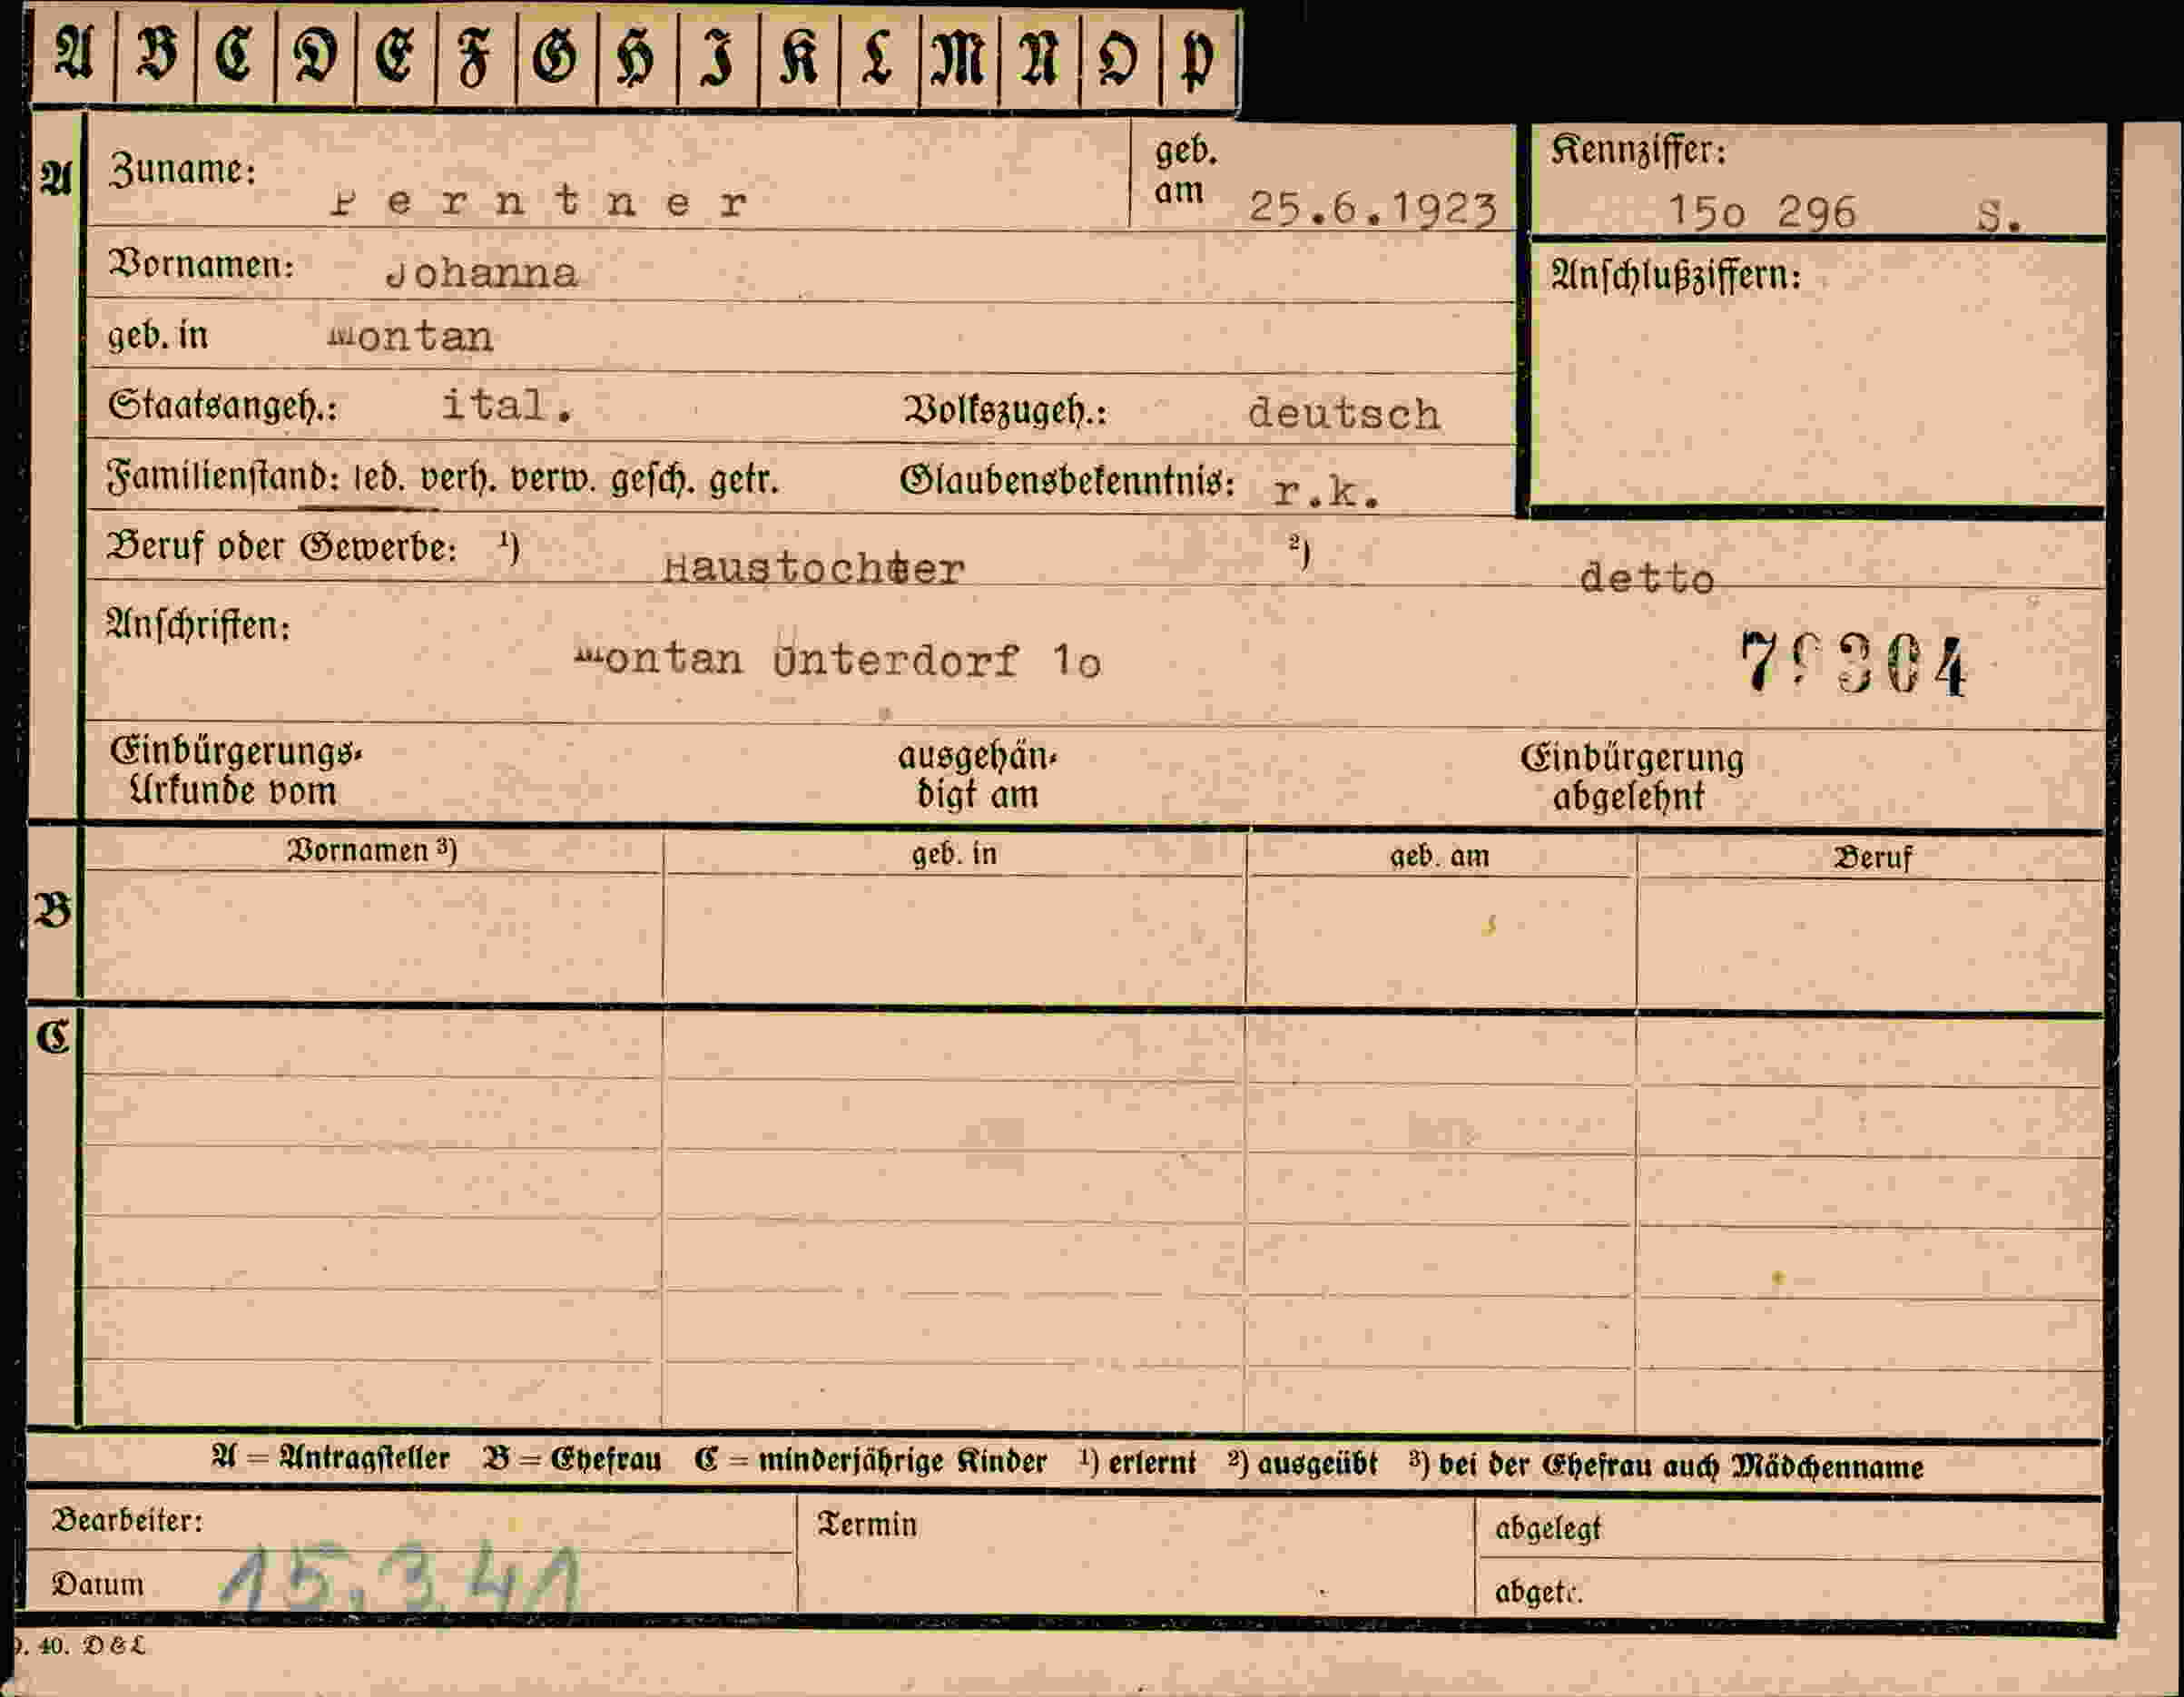 A B C D E F G H I K L M N O P
A
Zuname: Perntner geb. am 25.6.1923
Kennziffer: 15o 296 S.
Vornamen: Johanna
Anschlußziffern:
geb. in Montan
Staatsangeh.: ital. Volkszugeh.: deutsch
Familienstand: led. verh. verw. gesch. getr. Glaubensbekenntnis: r.k.
Beruf oder Gewerbe: ¹) Haustochter ²) detto
Anschriften: Montan Unterdorf 1o
Einbürgerungs-Urkunde vom ausgehändigt am Einbürgerung abgelehnt
B
Vornamen ³) geb. in geb. am Beruf
C
A = Antragsteller B = Ehefrau C = minderjährige Kinder ¹) erlernt ²) ausgeübt ³) bei der Ehefrau auch Mädchenname
Bearbeiter: Termin abgelegt
Datum 15.3.41 abgetr.
40. D & L